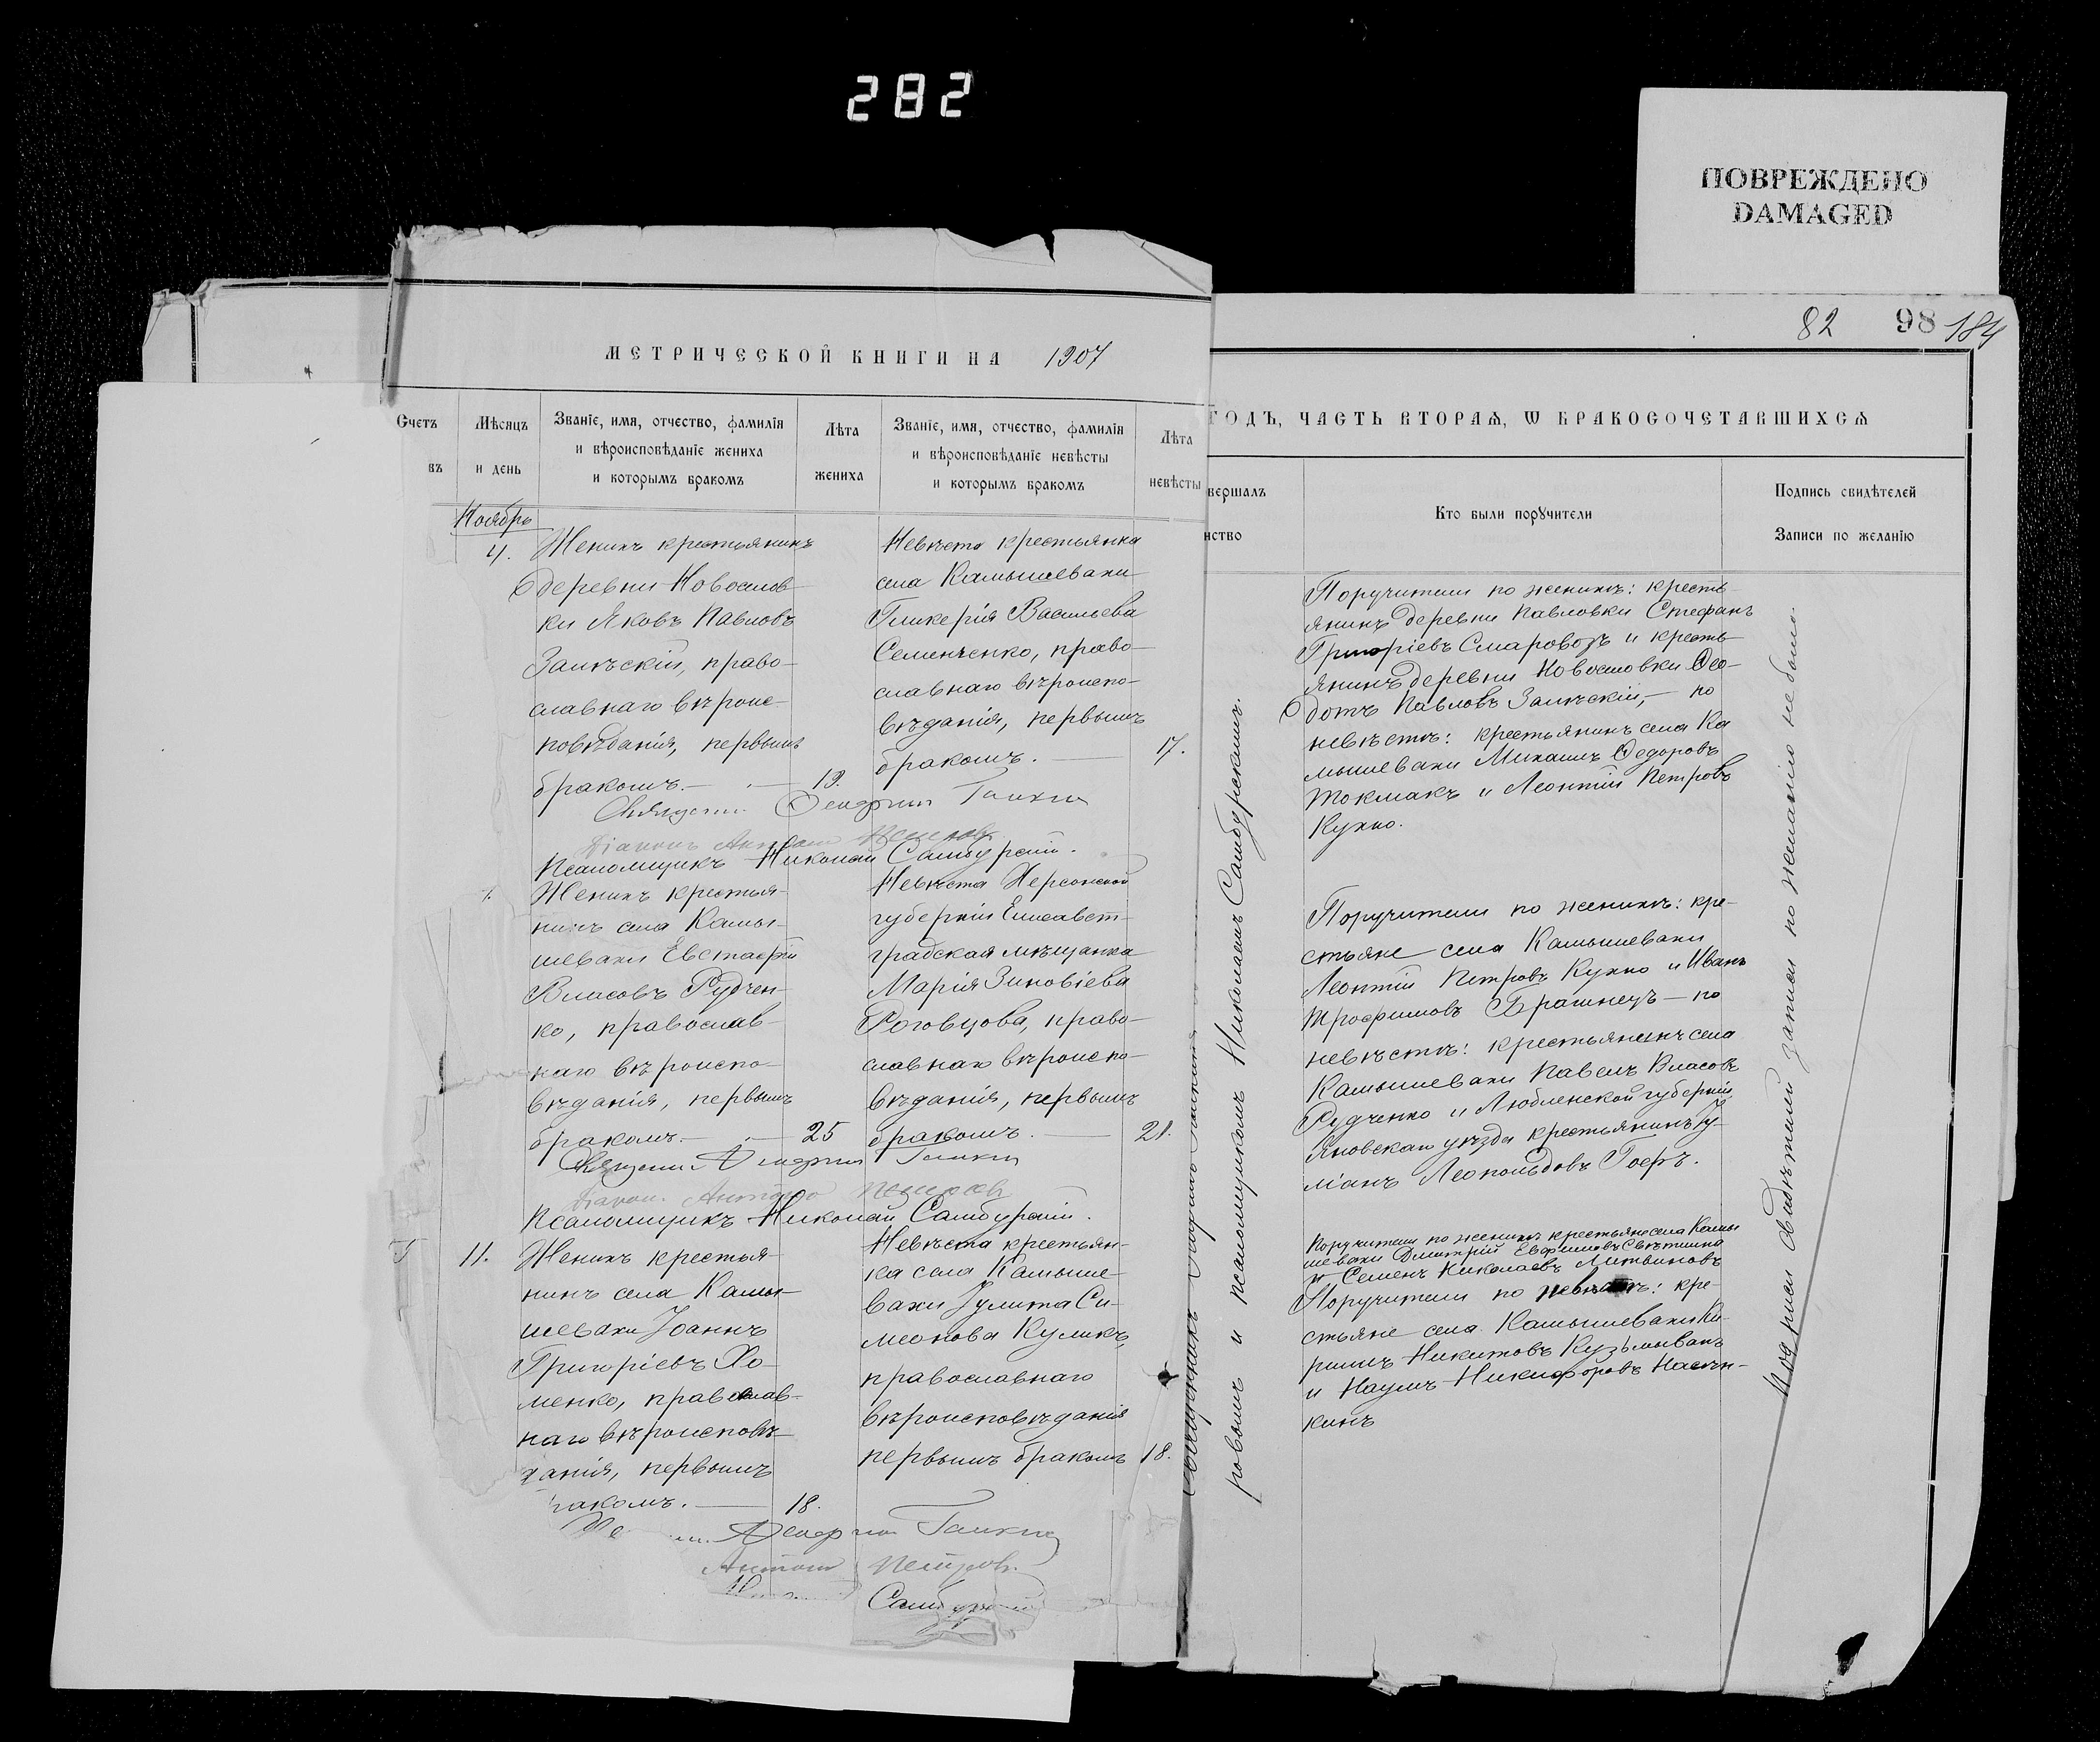 282
ПОВРЕЖДЕНО
DAMAGED
82 98 184
МЕТРИЧЕСКОЙ КНИГИ НА 1907
ГОДЪ, ЧАСТЬ ВТОРАЯ, Ѡ БРАКОСОЧЕТАВШИХСЯ
Счетъ
въ
Мѣсяцъ
и день
Званіе, имя, отчество, фамилія
и вѣроисповѣданіе жениха
и которымъ бракомъ
Лѣта
жениха
Званіе, имя, отчество, фамилія
и вѣроисповѣданіе невѣсты
и которымъ бракомъ
Лѣта
невѣсты
вершалъ
нство
Кто были порꙋчители
Подпись свидѣтелей
Записи по желанію
Ноябрь
4.
Женихъ крестьянинъ
деревни Новоселов-
ки Яковъ Павловъ
право-
славнаго вѣроис-
повѣданія, первымъ
бракомъ. 19.
Невѣста крестьянка
села Камышевахи
Гликерія Васильева
Семенченко, право-
славнаго вѣроиспо-
вѣданія, первымъ
бракомъ. 17.
Поручители по женихѣ: кресть-
янинъ деревни Павловки Стефанъ
Григоріевъ и кресть-
янинъ деревни Новоселовки Ѳео-
дотъ Павловъ по
невѣстѣ: крестьянинъ села Ка
мышевахи Михаилъ Ѳедоровъ
Токмакъ и Леонтій Петровъ
Кухно.
Псаломщикъ Николай Самбурскій.
Женихъ крестья-
нинъ села Камы-
шевахи Евстафій
Власовъ Рудчен-
ко, православ-
наго вѣроиспо-
вѣданія, первымъ
бракомъ. 25
Невѣста Херсонской
губерніи Елисавет-
градская мѣщанка
Марія Зиновіева
Роговцова, право-
славнаго вѣроиспо-
вѣданія, первымъ
бракомъ. 21.
Поручители по женихѣ: кре-
стьяне села Камышевахи
Леонтій Петровъ Кухно и Иванъ
Трофимовъ по
невѣстѣ: крестьянинъ села
Камышевахи Павелъ Власовъ
Рудченко и Люблинской губерніи
Яновскаго уѣзда крестьянинъ Ју-
ліанъ Леопольдовъ
Псаломщикъ Николай Самбурскій.
11.
Женихъ крестья-
нинъ села Камы-
шевахи Јоаннъ
Григоріевъ Хо-
менко, православ-
наго вѣроисповѣ-
данія, первымъ
ракомъ. 18.
Невѣста крестьян-
ка села Камыше-
вахи Јулита Си-
меонова Куликъ,
православнаго
вѣроисповѣданія
первымъ бракомъ 18.
Поручители по женихѣ крестьяне села Камы
шевахи Димитрій
и Семенъ Николаевъ Литвиновъ
Поручители по невѣстѣ: кре-
стьяне села Камышевахи Ки-
риллъ Никитовъ
и Наумъ Никифоровъ
кинъ
ровымъ и псаломщикомъ Николаемъ Самбурскимъ.
Подписи свидѣтелей записи по желанію не было.